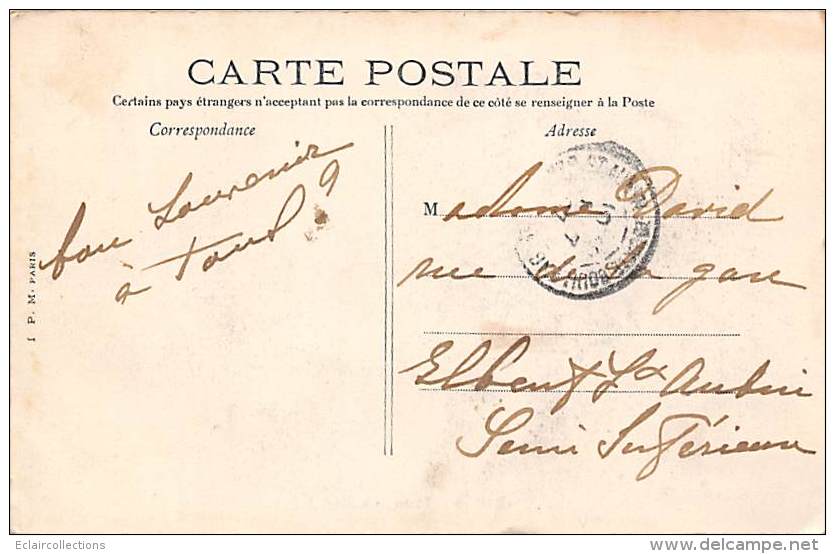 CARTE POSTALE
Certains pays étrangers n'acceptent pas la correspondance de ce côté se renseigner à la Poste
Correspondance
Adresse
bon Souvenir
à Tous
Madame David
rue de la gare
Elbeuf St Aubin
Seine Inférieure
I P. M. PARIS
Eclaircollections
www.delcampe.net